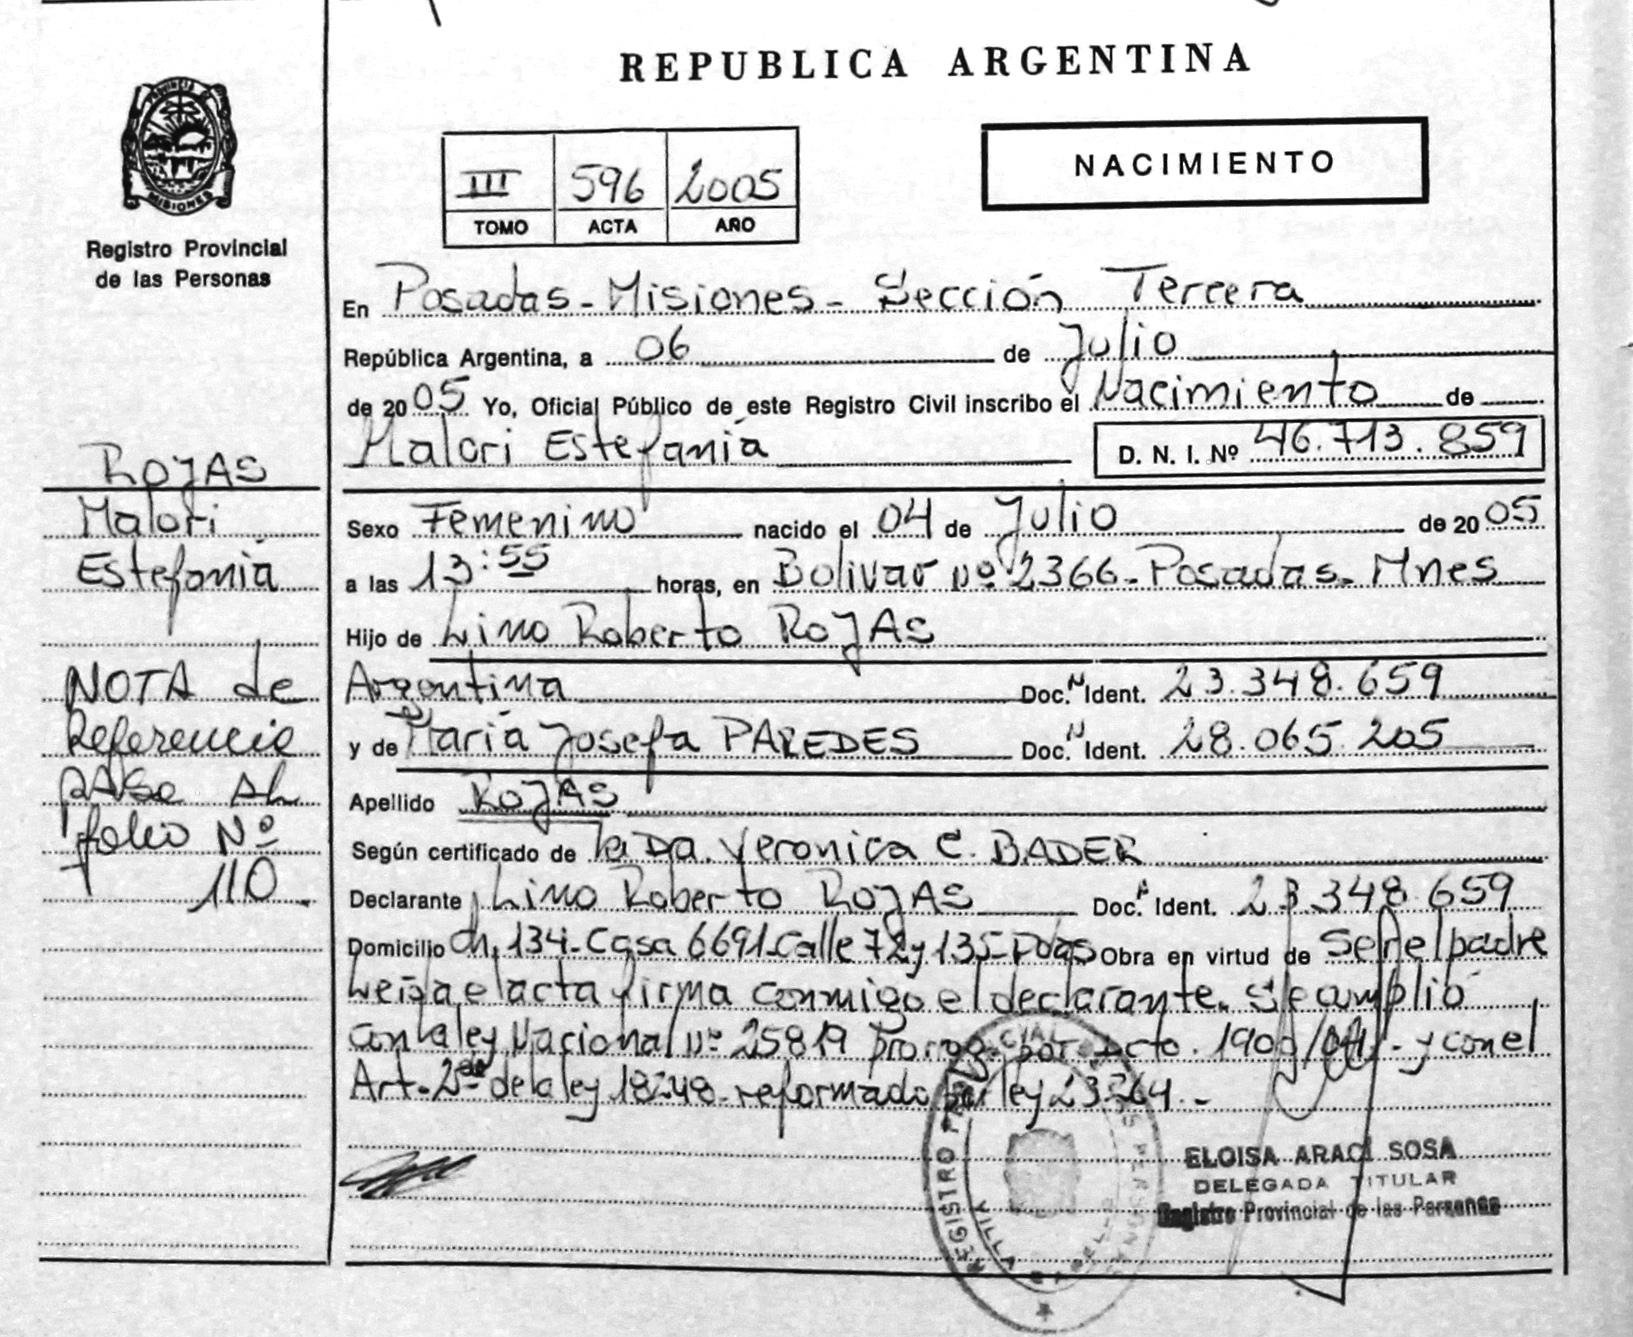 REPUBLICA ARGENTINA
PROVINCIA DE
MISIONES
Registro Provincial
de las Personas
III 596 2005
TOMO ACTA AÑO
NACIMIENTO
En Posadas - Misiones - Sección Tercera
República Argentina, a 06 de Julio
de 2005 Yo, Oficial Público de este Registro Civil inscribo el Nacimiento de
Malori Estefanía D. N. I. Nº 46.713.859
Sexo Femenino nacido el 04 de Julio de 2005
a las 13:55 horas, en Bolivar nº 2366 - Posadas - Mnes
Hijo de Lino Roberto ROJAS
Argentina Doc. N Ident. 23.348.659
y de María Josefa PAREDES Doc. N Ident. 28.065.205
Apellido ROJAS
Según certificado de la Dra. Veronica C. BADER
Declarante Lino Roberto ROJAS Doc. N Ident. 23.348.659
Domicilio Ch. 134 - Casa 6691 - Calle 72 y 135 - Pdas Obra en virtud de Ser el padre
Leida el acta firma conmigo el declarante. Se amplió
con la ley Nacional nº 25819 prorrog. por Dcto. 1900/04 - y con el
Art. 2do de la ley 18248 - reformado por ley 23264 -
ROJAS
Malori
Estefanía
NOTA de
Referencia
pase al
folio Nº
110
REGISTRO PROVINCIAL DE LAS PERSONAS
VILLA
ELOISA ARACÍ SOSA
DELEGADA TITULAR
Registro Provincial de las Personas